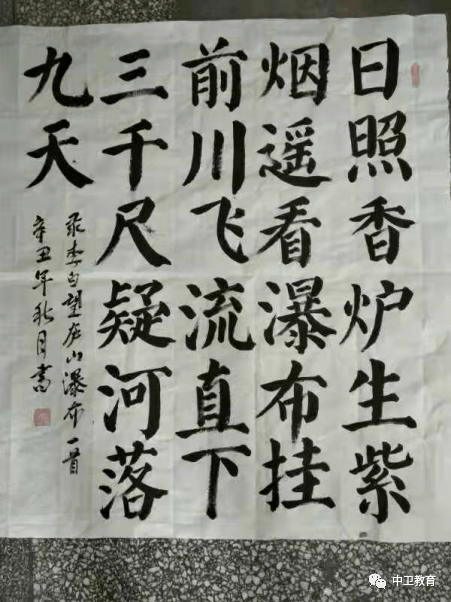 日照香炉生紫
烟遥看瀑布挂
前川飞流直下
三千尺疑河落
九天
录李白望庐山瀑布一首
辛丑年秋月书
中卫教育